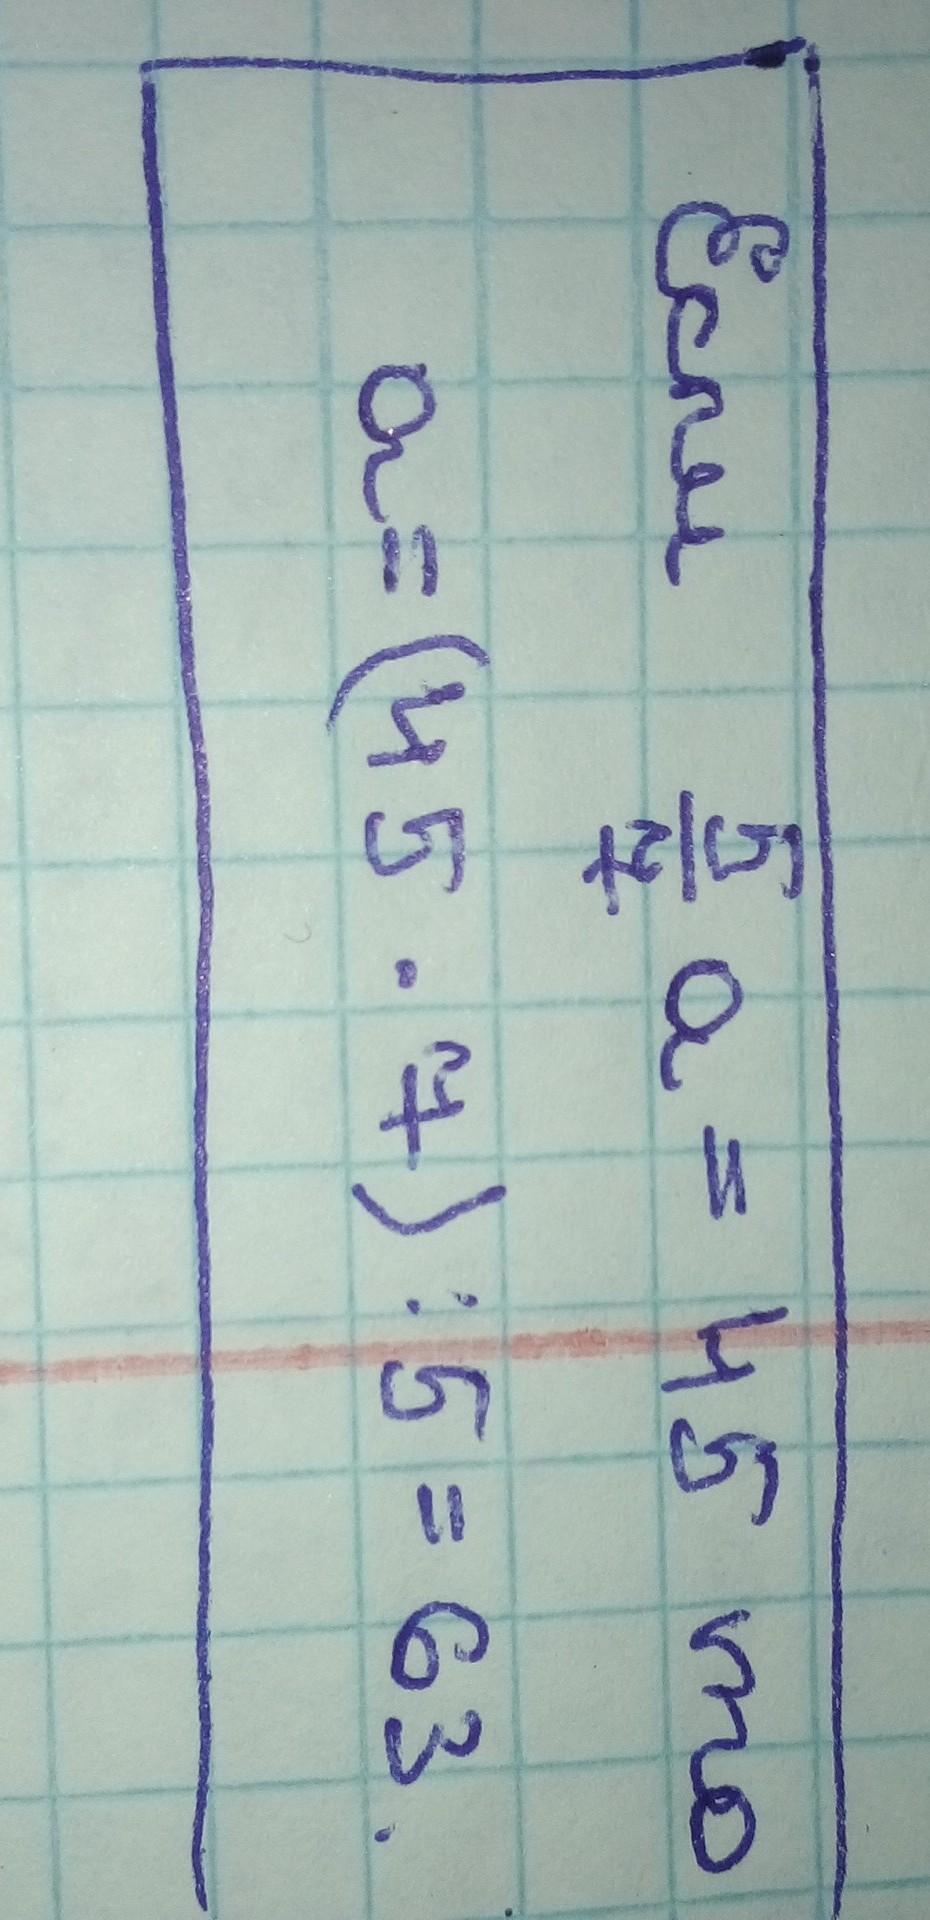 Если 5/7 a = 45 то
a = (45 · 7) : 5 = 63.